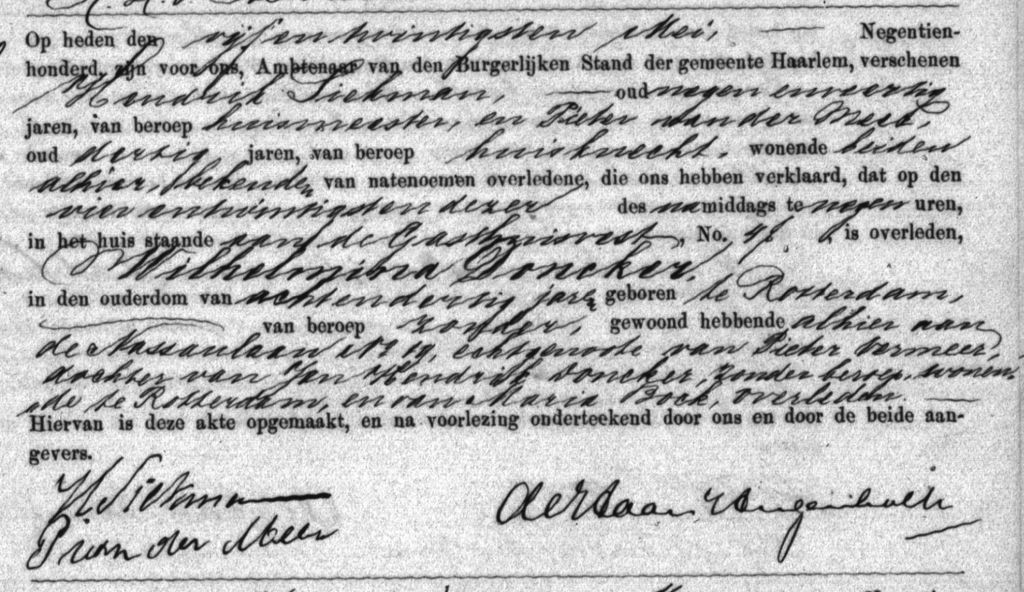 Op heden den vijfentwintigsten Mei, Negentien-
honderd, zijn voor ons, Ambtenaar van den Burgerlijken Stand der gemeente Haarlem, verschenen
Hendrik Siekman, oud negenenveertig
jaren, van beroep huismeester, en Pieter van der Meer,
oud dertig jaren, van beroep huisknecht, wonende beiden
alhier, bekenden van natenoemen overledene, die ons hebben verklaard, dat op den
vierentwintigsten dezer des namiddags te negen uren,
in het huis staande aan de Gasthuisvest, No. 47, is overleden,
Wilhelmina Doncker,
in den ouderdom van achtendertig jaren geboren te Rotterdam,
van beroep zonder, gewoond hebbende alhier aan
de Nassaulaan No 19, echtgenoote van Pieter Vermeer,
dochter van Jan Hendrik Doncker, zonder beroep, wonen-
de te Rotterdam, en van Maria Bock, overleden.
Hiervan is deze akte opgemaakt, en na voorlezing onderteekend door ons en door de beide aan-
gevers.
H Siekman
P van der Meer
de Haan Hugenholtz